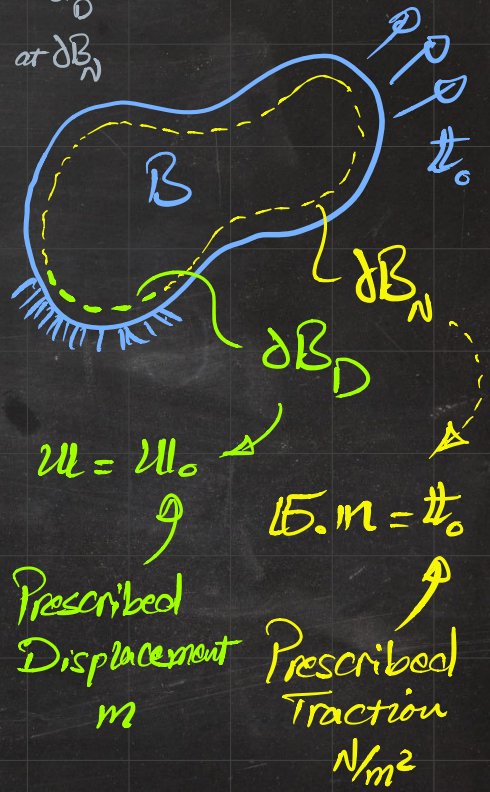 D
at ∂B_N
B
𝕥₀
∂B_N
∂B_D
𝕦 = 𝕦₀
𝕤.𝕟 = 𝕥₀
Prescribed
Displacement
m
Prescribed
Traction
N/m²